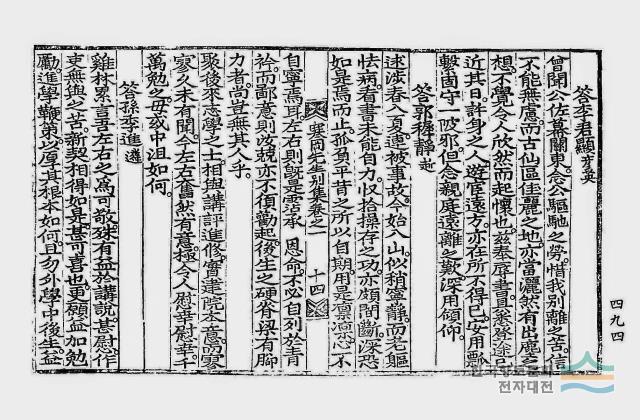 答李君顯彦英
曾聞公佐幕關東念公驅馳之勞惜我別離之苦信
不能無慮而古仙區佳麗之地亦當灑然有出塵之
想不覺令人欣然而起懷也玆奉辱書具悉
近其日許身之人遊宦遠方亦在所不得已安用瓢
繫固守一陂邪但念親庭遠離之歎深用傾仰
答郭穉靜
述涉春入夏連被事故今始入山似稍寧靜而老軀
怯病看書未能自力收拾操存之功亦頗間斷深恐
如是焉而止孤負平昔之所以自期用是凜凜心不
寒岡先生別集卷之一 十四
自寧焉耳左右則旣是承 恩命不必自列於靑
衿而鄙意則汝兢亦不須勸起後生之硬脊梁有脚
力者尙豈無其人乎
聚後來志學之士相與講評進修實建院本意而寥
寥久未有聞今左右奮然有意極令人慰幸慰幸千
萬勉之毋或中沮如何
答孫季進遴
雞林累言言左右之爲可敬殊有益於講說甚慰作
吏無與之苦新契相得如是甚可喜也更願益加勉
勵進學鞭策以厚其根本如何且勿外學中後生益
四九四
전자대전